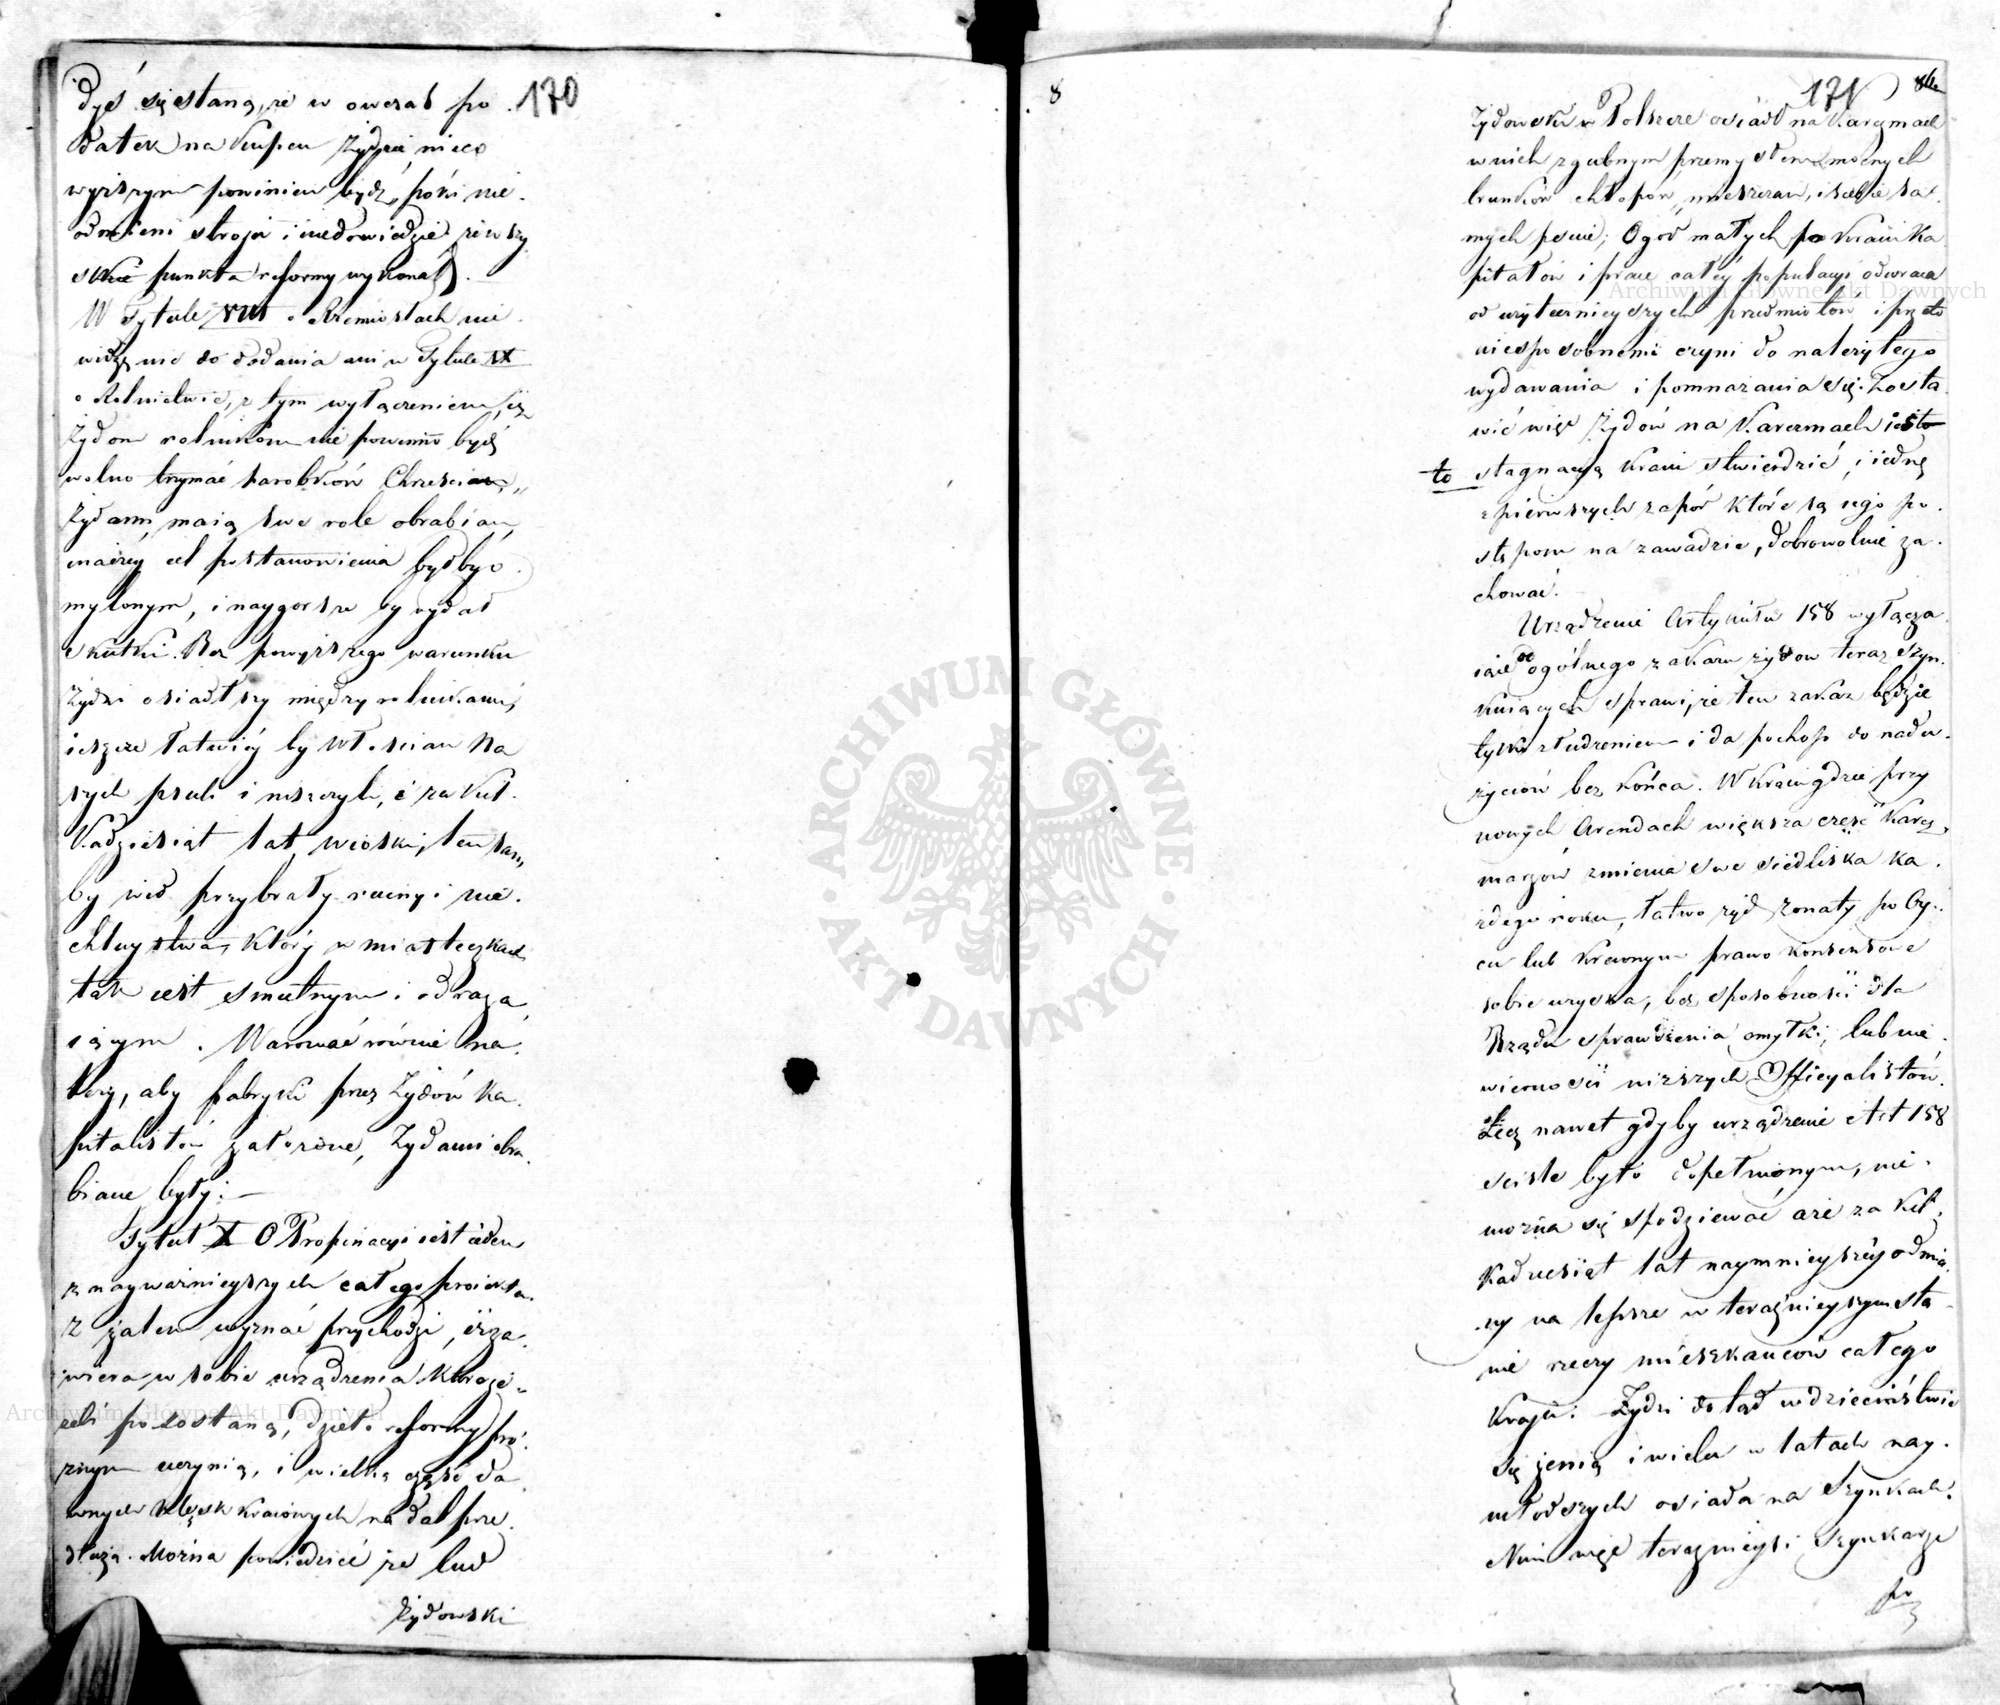 170
dyś się staną, że w owczas po
datek na Kupcu Żydzie nieco
wyższym powinien bydź, póki nie
odmieni stroju i niedowiedzie że wszy
skie punkta reformy wykonał.
W Tytule VIII o Rzemiosłach nie
widzę nic do dodania ani w Tytule IX
o Rolnictwie, z tym wyłączeniem, iż
Żydom rolnikom nie powinno bydź
wolno trzymać parobków Chrześcian,
Żydami maią swe role obrabiać,
inaczey cel postanowienia byłby o
mylonym, i naygorsze by wydał
skutki. Bez powyższego warunku
Żydzi osiadłszy między rolnikami,
ieszcze łatwiéy by Włościan na
szych psuli i niszczyli, i za kil
kadziesiąt lat wioski, ten sam
by wid przybrały ruiny i nie
chluystwa, który w miasteczkach
tak iest smutnym i odraża
iącym. Warować równie na
leży, aby fabryki przez Żydów ka
pitalistów założone, Żydami obra
biane były.
Tytuł X O Propinacyi iest ieden
z nayważnieyszych całego proiektu.
Z żalem wyznać przychodzi, iż za
wiera w sobie urządzenia które ie
żeli pozostaną, dzieło reformy pró
żnym uczynią, i wielką część da
wnych klęsk kraiowych na dal prze
dłużą. Można powiedzieć że lud
Żydowski
8
171
Żydowski w Polszcze osiadł na Karczmach
w nich zgubnym przemysłem mocnych
trunków chłopów, mieszczan, i siebie sa
mych psuie; Ogół małych po kraiu ka
pitałów i prace całéy populacyi odwraca
od użytecznieyszych przedmiotów i przeto
niesposobnemi czyni do należytego
wydawania i pomnażania się. Zosta
wić więc Żydów na Karczmach iest
to stagnacyą kraiu stwierdzić, i iednę
z pierwszych zapór które są iego po
stępom na zawadzie, dobrowolnie za
chować.
Urządzenie Artykułu 158 wyłącza
iące od ogólnego zakazu żydów teraz szyn
kuiących sprawi, że ten zakaz będzie
tylko złudzeniem i da pochop do nadu
życiów bez końca. W Kraiu gdzie przy
nowych Arendach większa część Karcz
marzów zmienia swe siedliska ka
żdego roku, łatwo żyd żonaty po Oy
cu lub krewnym prawo konsensowe
sobie uzyska, bez sposobności dla
Rządu sprawdzenia omyłki, lub nie
wierności niższych Officyalistów.
Lecz nawet gdyby urządzenie Art 158
ściśle było dopełnionym, nie
można się spodziewać aże za kil
kadziesiąt lat naymnieyszéy odmia
ny na lepsze w teraźnieyszym sta
nie rzeczy mieszkańców całego
Kraju. Żydzi dotąd w dzieciństwie
się żenią i wielu w latach nay
młodszych osiada na Szynkach.
Nim więc teraźnieysi Szynkarze
po